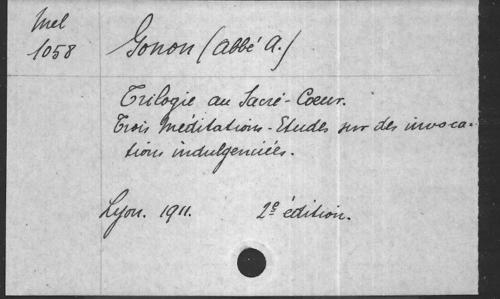 Mel
1058
Gonon (abbé A.)
Trilogie au Sacré-Cœur.
Trois Méditations-Etudes sur des invoca-
tions indulgenciées.
Lyon. 1911. 2e édition.